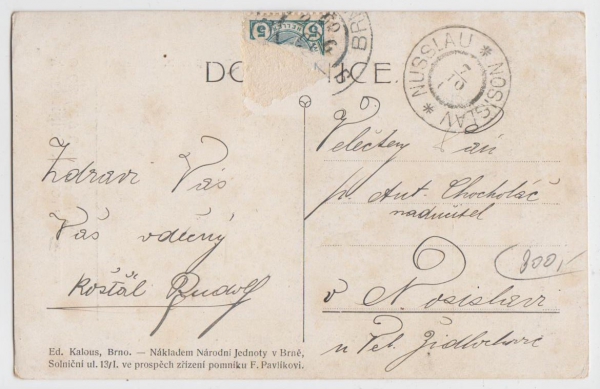 5 HELLER 5
BR
DO NICE.
NUSSLAU * NOSISLAV *
Zdraví Vás
Váš vděčný
Košťál Rudolf
Velectěný Pán
p. Ant. Chocholáč
nadučitel
v Nosislavi
u Žídlochovic
800,-
Ed. Kalous, Brno. — Nákladem Národní Jednoty v Brně,
Solniční ul. 13/I. ve prospěch zřízení pomníku F. Pavlíkovi.